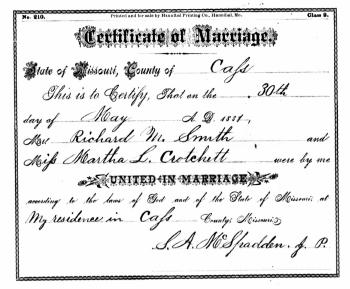 No. 210. Printed and for sale by Hannibal Printing Co., Hannibal, Mo. Class 2.
Certificate of Marriage.
State of Missouri, County of Cass
This is to Certify, That on the 30th
day of May A. D. 1881,
Mr. Richard M. Smith and
Miss Martha L. Crotchett were by me
UNITED IN MARRIAGE
according to the laws of God and of the State of Missouri; at
My residence in Cass County, Missouri.
S. A. McSpadden. J. P.